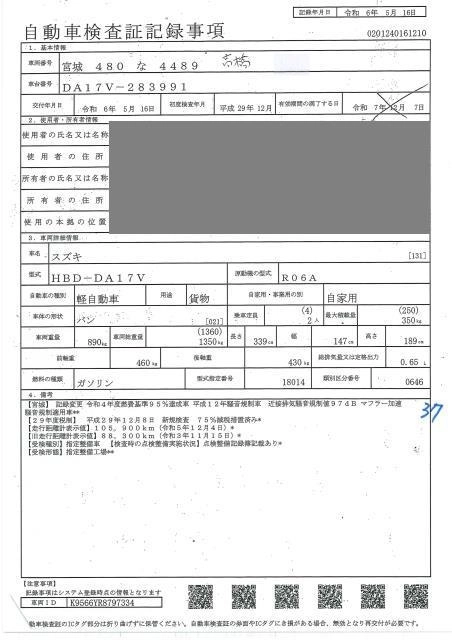 記録年月日 令和 6年 5月 16日
自動車検査証記録事項
0201240161210
1. 基本情報
車両番号 宮城 480 な 4489 高橋
車台番号 DA17V-283991
交付年月日 令和 6年 5月 16日 初度検査年月 平成 29年 12月 有効期間の満了する日 令和 7年 12月 7日
2. 使用者・所有者情報
使用者の氏名又は名称
使用者の住所
所有者の氏名又は名称
所有者の住所
使用の本拠の位置
3. 車両詳細情報
車名 スズキ [131]
型式 HBD-DA17V 原動機の型式 R06A
自動車の種別 軽自動車 用途 貨物 自家用・事業用の別 自家用
車体の形状 バン [021] 乗車定員 (4) 2人 最大積載量 (250) 350kg
車両重量 890kg 車両総重量 (1360) 1350kg 長さ 339cm 幅 147cm 高さ 189cm
前軸重 460kg 後軸重 430kg 総排気量又は定格出力 0.65 L
燃料の種類 ガソリン 型式指定番号 18014 類別区分番号 0646
4. 備考
【宮城】 記録変更 令和4年度燃費基準95%達成車 平成12年騒音規制車 近接排気騒音規制値97dB マフラー加速
騒音規制適用車**
【29年度税制】 平成29年12月8日 新規検査 75%減税措置済み*
【走行距離計表示値】105,900km(令和5年12月4日)*
【旧走行距離計表示値】88,300km(令和3年11月15日)*
【受検種別】指定整備車 【検査時の点検整備実施状況】点検整備記録簿記載あり*
【受検形態】指定整備工場**
37
【注意事項】
記録事項はシステム登録時点の情報となります
車両ID K9566YR8797334
自動車検査証のICタグ部分は折り曲げずに保管ください。自動車検査証の券面やICタグに損がある場合、無効となり再交付が必要です。